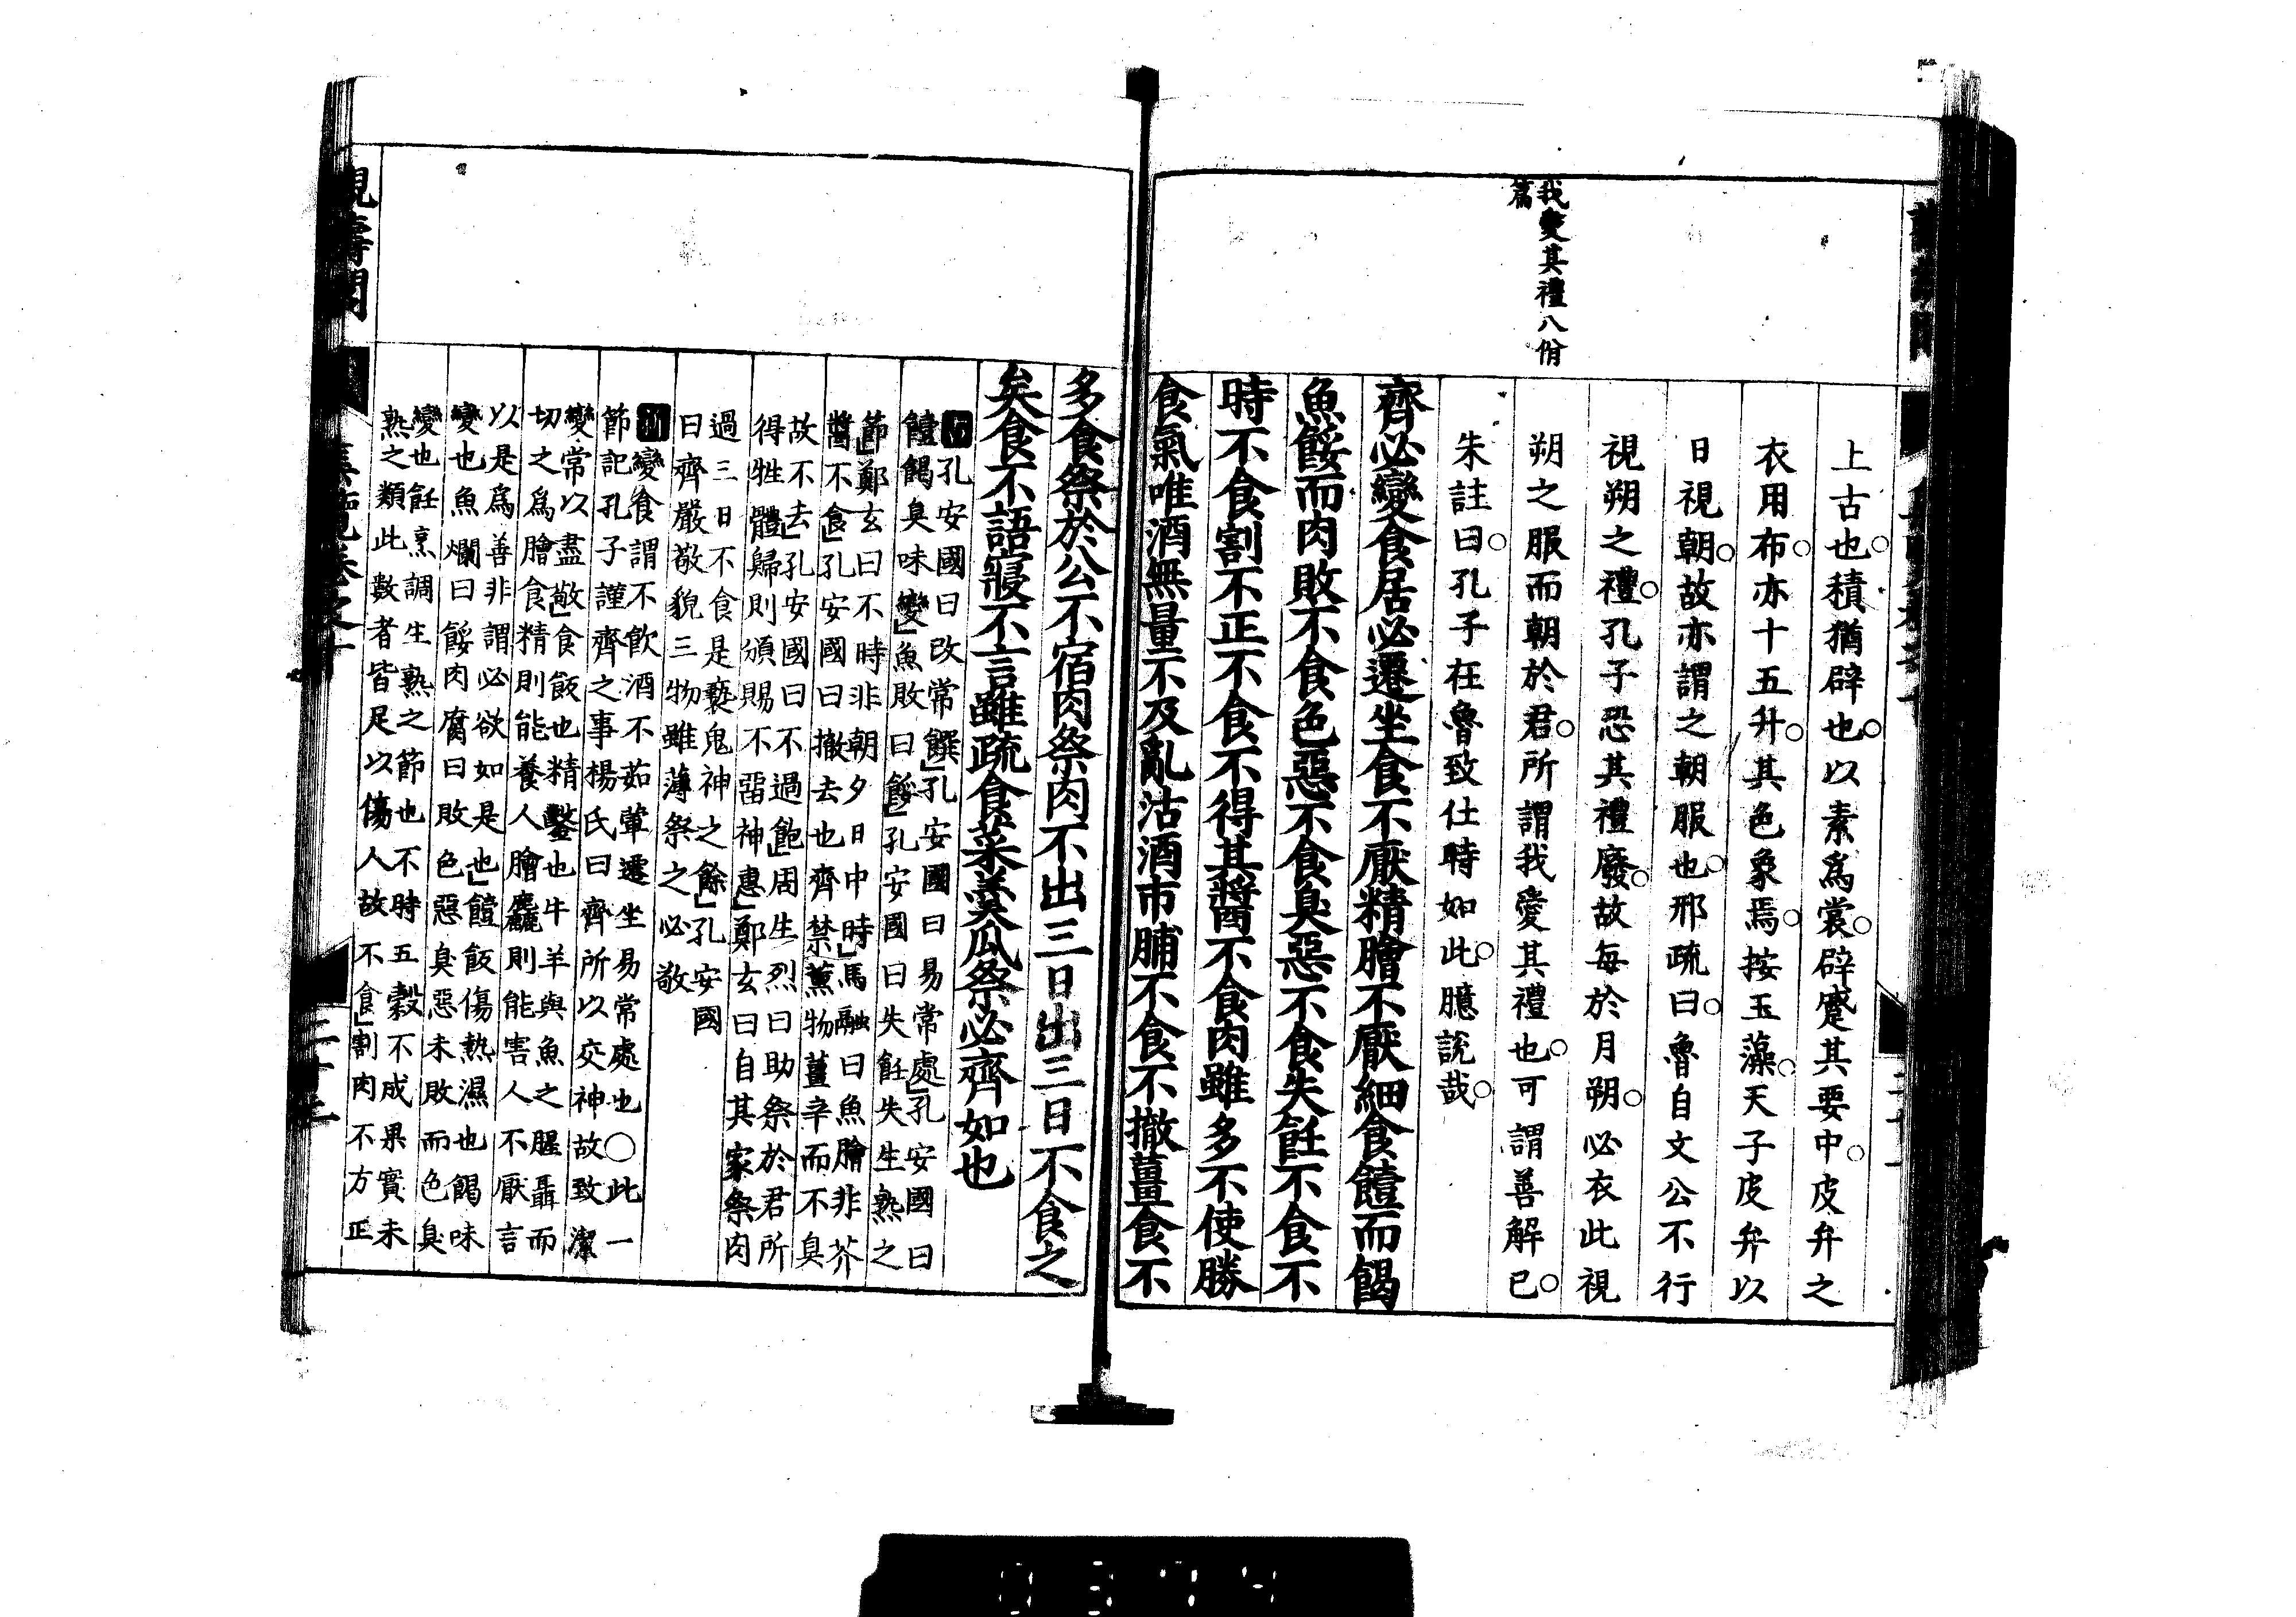 我愛其禮八佾
篇
上古也積猶辟也以素爲裳辟蹙其要中皮弁之
衣用布亦十五升其色象焉按玉藻天子皮弁以
日視朝故亦謂之朝服也邢疏曰魯自文公不行
視朔之禮孔子恐其禮廢故每於月朔必衣此視
朔之服而朝於君所謂我愛其禮也可謂善解已
朱註曰孔子在魯致仕時如此臆說哉
齊必變食居必遷坐食不厭精膾不厭細食饐而餲
魚餒而肉敗不食色惡不食臭惡不食失飪不食不
時不食割不正不食不得其醬不食肉雖多不使勝
食氣唯酒無量不及亂沽酒市脯不食不撤薑食不
多食祭於公不宿肉祭肉不出三日出三日不食之
矣食不語寢不言雖疏食菜羹瓜祭必齊如也
孔安國曰改常饌孔安國曰易常處孔安國曰
饐餲臭味變魚敗曰餒孔安國曰失飪失生熟之
節鄭玄曰不時非朝夕日中時馬融曰魚膾非芥
醬不食孔安國曰撤去也齊禁薰物薑辛而不臭
故不去孔安國曰不過飽周生烈曰助祭於君所
得牲體歸則頒賜不留神惠鄭玄曰自其家祭肉
過三日不食是褻鬼神之餘孔安國
曰齊嚴敬貌三物雖薄祭之必敬
變食謂不飲酒不茹葷遷坐易常處也○此一
節記孔子謹齊之事楊氏曰齊所以交神故致潔
變常以盡敬食飯也精鑿也牛羊與魚之腥聶而
切之爲膾食精則能養人膾麤則能害人不厭言
以是爲善非謂必欲如是也饐飯傷熱濕也餲味
變也魚爛曰餒肉腐曰敗色惡臭惡未敗而色臭
變也飪烹調生熟之節也不時五穀不成果實未
熟之類此數者皆足以傷人故不食割肉不方正
二十二